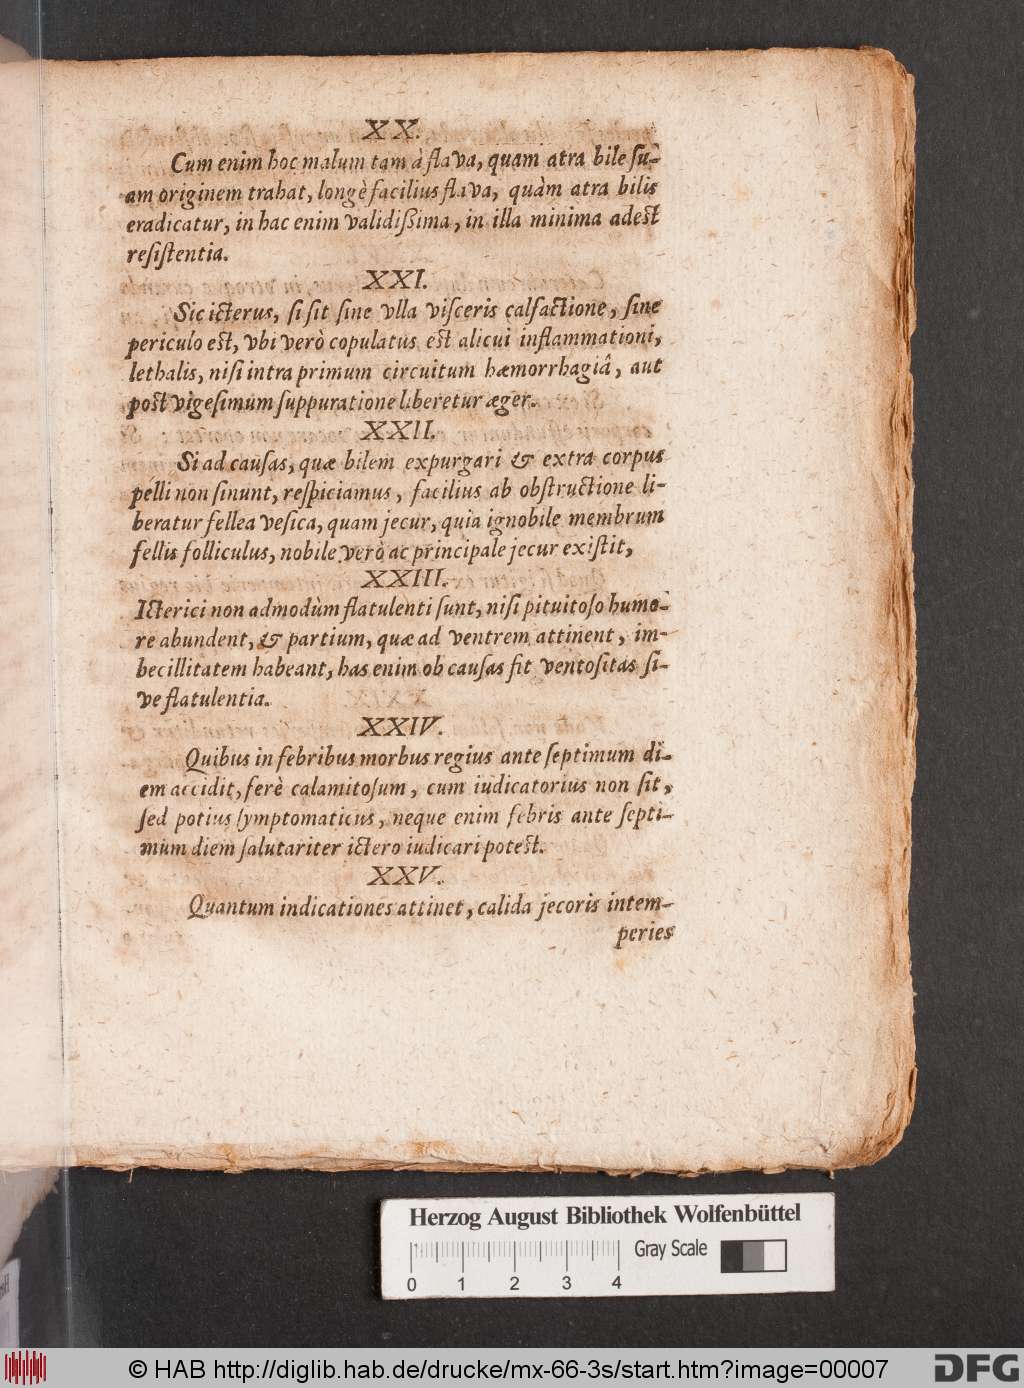 XX.
Cum enim hoc malum tam à flava, quam atra bile su-
am originem trahat, longè facilius flava, quàm atra bilis
eradicatur, in hac enim validißima, in illa minima adest
resistentia.
XXI.
Sic icterus, si sit sine vlla visceris calfactione, sine
periculo est, vbi verò copulatus est alicui inflammationi,
lethalis, nisi intra primum circuitum hæmorrhagiâ, aut
post vigesimum suppuratione liberetur æger.
XXII.
Si ad causas, quæ bilem expurgari & extra corpus
pelli non sinunt, respiciamus, facilius ab obstructione li-
beratur fellea vesica, quam jecur, quia ignobile membrum
fellis folliculus, nobile verò ac principale jecur existit,
XXIII.
Icterici non admodùm flatulenti sunt, nisi pituitoso humo-
re abundent, & partium, quæ ad ventrem attinent, im-
becillitatem habeant, has enim ob causas fit ventositas si-
ve flatulentia.
XXIV.
Quibus in febribus morbus regius ante septimum di-
em accidit, ferè calamitosum, cum iudicatorius non sit,
sed potius symptomaticus, neque enim febris ante septi-
mum diem salutariter ictero iudicari potest.
XXV.
Quantum indicationes attinet, calida jecoris intem-
peries
Herzog August Bibliothek Wolfenbüttel
Gray Scale
0 1 2 3 4
© HAB http://diglib.hab.de/drucke/mx-66-3s/start.htm?image=00007
DFG